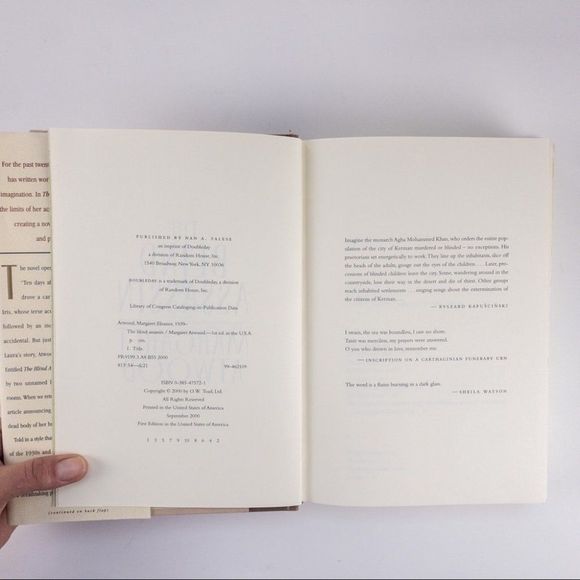 For the past twent
has written wor
imagination. In Th
the limits of her ac
creating a nov
and p
The novel open
"Ten days af
drove a car
Iris, whose terse acc
followed by an inq
accidental. But just
Laura's story, Atwoo
Entitled The Blind A
by two unnamed l
rooms. When we retu
article announcing
dead body of her hu
Told in a style that
of the 1930s and
(continued on back flap)
PUBLISHED BY NAN A. TALESE
an imprint of Doubleday
a division of Random House, Inc.
1540 Broadway, New York, NY 10036
DOUBLEDAY is a trademark of Doubleday, a division
of Random House, Inc.
Library of Congress Cataloging-in-Publication Data
Atwood, Margaret Eleanor, 1939–
The blind assassin / Margaret Atwood.—1st ed. in the U.S.A.
p. cm.
I. Title.
PR9199.3.A8 B55 2000
813'.54—dc21 99-462109
ISBN 0-385-47572-1
Copyright © 2000 by O.W. Toad, Ltd.
All Rights Reserved
Printed in the United States of America
September 2000
First Edition in the United States of America
1 3 5 7 9 10 8 6 4 2
Imagine the monarch Agha Mohammed Khan, who orders the entire
population of the city of Kerman murdered or blinded – no exceptions. His
praetorians set energetically to work. They line up the inhabitants, slice off
the heads of the adults, gouge out the eyes of the children. . . . Later, pro-
cessions of blinded children leave the city. Some, wandering around in the
countryside, lose their way in the desert and die of thirst. Other groups
reach inhabited settlements . . . singing songs about the extermination of
the citizens of Kerman. . . .
— RYSZARD KAPUŚCIŃSKI
I swam, the sea was boundless, I saw no shore.
Tanit was merciless, my prayers were answered.
O you who drown in love, remember me.
— INSCRIPTION ON A CARTHAGINIAN FUNERARY URN
The word is a flame burning in a dark glass.
— SHEILA WATSON